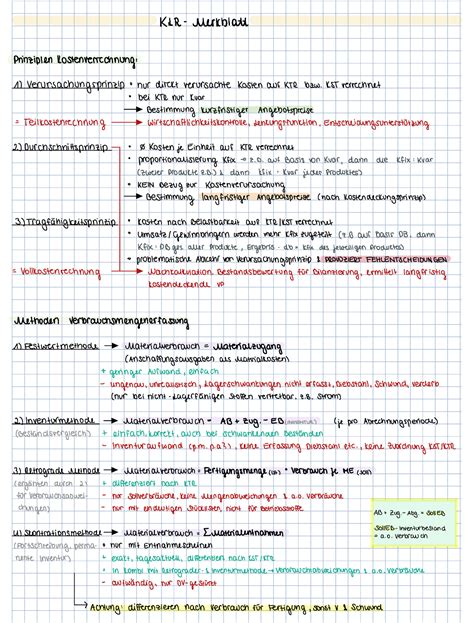 KLR - Merkblatt
Prinzipien Kostenverrechnung:
1) Verursachungsprinzip • nur direkt verursachte Kosten auf KTR bzw. KST verrechnet
• bei KTR nur Kvar
→ Bestimmung kurzfristiger Angebotspreise
= Teilkostenrechnung → Wirtschaftlichkeitskontrolle, Lenkungsfunktion, Entscheidungsunterstützung
2) Durchschnittsprinzip • Ø Kosten je Einheit auf KTR verrechnet
• proportionalisierung Kfix → z.B. auf Basis von Kvar, dann
(zweier Produkte z.B.) & dann Kfix · Kvar jeder Produktes)
• KEIN Bezug zur Kostenverursachung
→ Bestimmung langfristiger Angebotspreise (nach Kostendeckungsprinzip)
3) Tragfähigkeitsprinzip • Kosten nach Belastbarkeit auf KTR/KST verrechnet
• Umsatz/Gewinnbringern werden mehr Kfix zugeteilt (z.B auf Basis DB, dann
Kfix : DB ges aller Produkte, Ergebnis · db = Kfix des jeweiligen Produktes)
• problematische Abkehr von Verursachungsprinzip & PROVOZIERT FEHLENTSCHEIDUNGEN
= Vollkostenrechnung → Nachkalkulation, Bestandsbewertung für Bilanzierung, ermittelt langfristig
kostendeckende VP
Methoden Verbrauchsmengenerfassung
1) Festwertmethode → Materialverbrauch = Materialzugang
(Anschaffungsausgaben als Materialkosten)
+ geringer Aufwand, einfach
- ungenau, unrealistisch, Lagerschwankungen nicht erfasst, Diebstahl, Schwund, Verderb
(nur bei nicht-Lagerfähigen Stoffen vertretbar, z.B. Strom)
2) Inventurmethode → Materialverbrauch = AB + Zug. - EB (je pro Abrechnungsperiode)
(Bestandsvergleich) + einfach, korrekt, auch bei schwankenden Beständen
- Inventuraufwand (p.m. p.a?), keine Erfassung Diebstahl etc., keine Zuordnung KST/KTR
3) Retrograde Methode → Materialverbrauch = Fertigungsmenge · Verbrauch je ME (soll)
(ergänzen durch 2) + differenziert nach KTR
für Verbrauchsabwei- - nur Sollverbräuche, keine Mengenabweichungen & a.o. Verbräuche
chungen) - nur mit eindeutigen Stücklisten, nicht für Betriebsstoffe
AB + Zug - Abg = SollEB
SollEB - Inventurbestand
= a.o. Verbrauch
4) Skontrationsmethode → Materialverbrauch = ∑ Materialentnahmen
(Fortschreibung, perma- • nur mit Entnahmescheinen
nente Inventur) + exakt, tagesaktuell, differenziert nach KST/KTR
+ in Kombi mit Retrograder- & Inventurmethode → Verbrauchsabweichungen & a.o. Verbräuche
- aufwändig, nur DV-gestützt
→ Achtung: differenzieren nach Verbrauch für Fertigung, sonst V. & Schwund